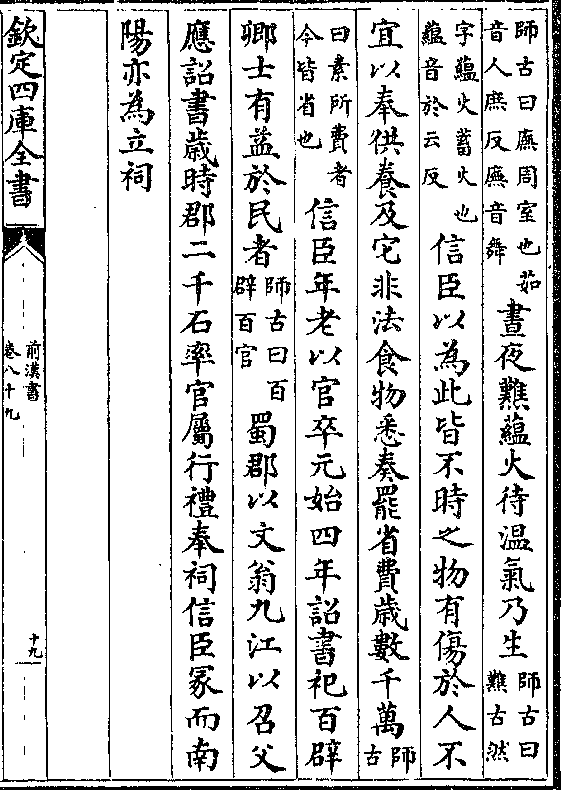 師古曰廡周室也茹
音人庶反廡音舞
晝夜㸐蘊火待溫氣乃生
師古曰
㸐古然
字蘊火蓄火也
蘊音於云反
信臣以為此皆不時之物有傷於人不
宜以奉供養及它非法食物悉奏罷省費歲數千萬
師
古
曰素所費者
今皆省也
信臣年老以官卒元始四年詔書祀百辟
卿士有益於民者
師古曰百
辟百官
蜀郡以文翁九江以召父
應詔書歲時郡二千石率官屬行禮奉祠信臣冢而南
陽亦為立祠
欽定四庫全書
前漢書
卷八十九
十九